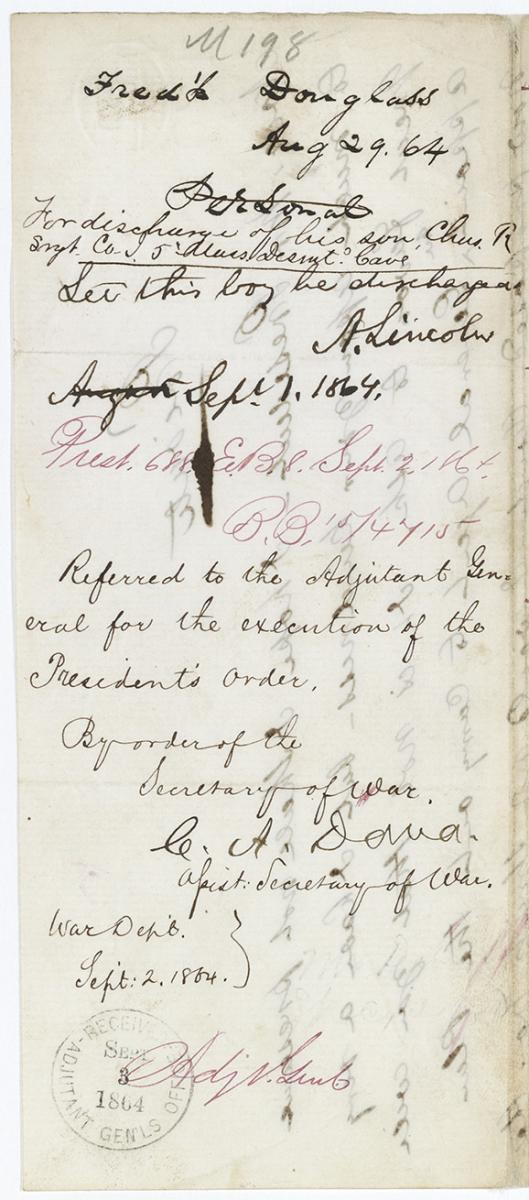 M198
Fred'k Douglass
Aug 29. 64
Personal
For discharge of his son, Chas. R
Sergt. Co. I. 5" Mass Desmt. Cave
Let this boy be discharged
A. Lincoln
August Sept. 1. 1864.
Prest. 688 E.B.8. Sept. 2. 1864.
B.B. 15/4715
Referred to the Adjutant Gen=
eral for the execution of the
President's order.
By order of the
Secretary of War.
C. A. Dana.
Assist: Secretary of War.
War Dept.
Sept: 2. 1864.
RECEIVED
SEPT
3
1864
ADJUTANT GEN'LS OFF
Adjt. Genl